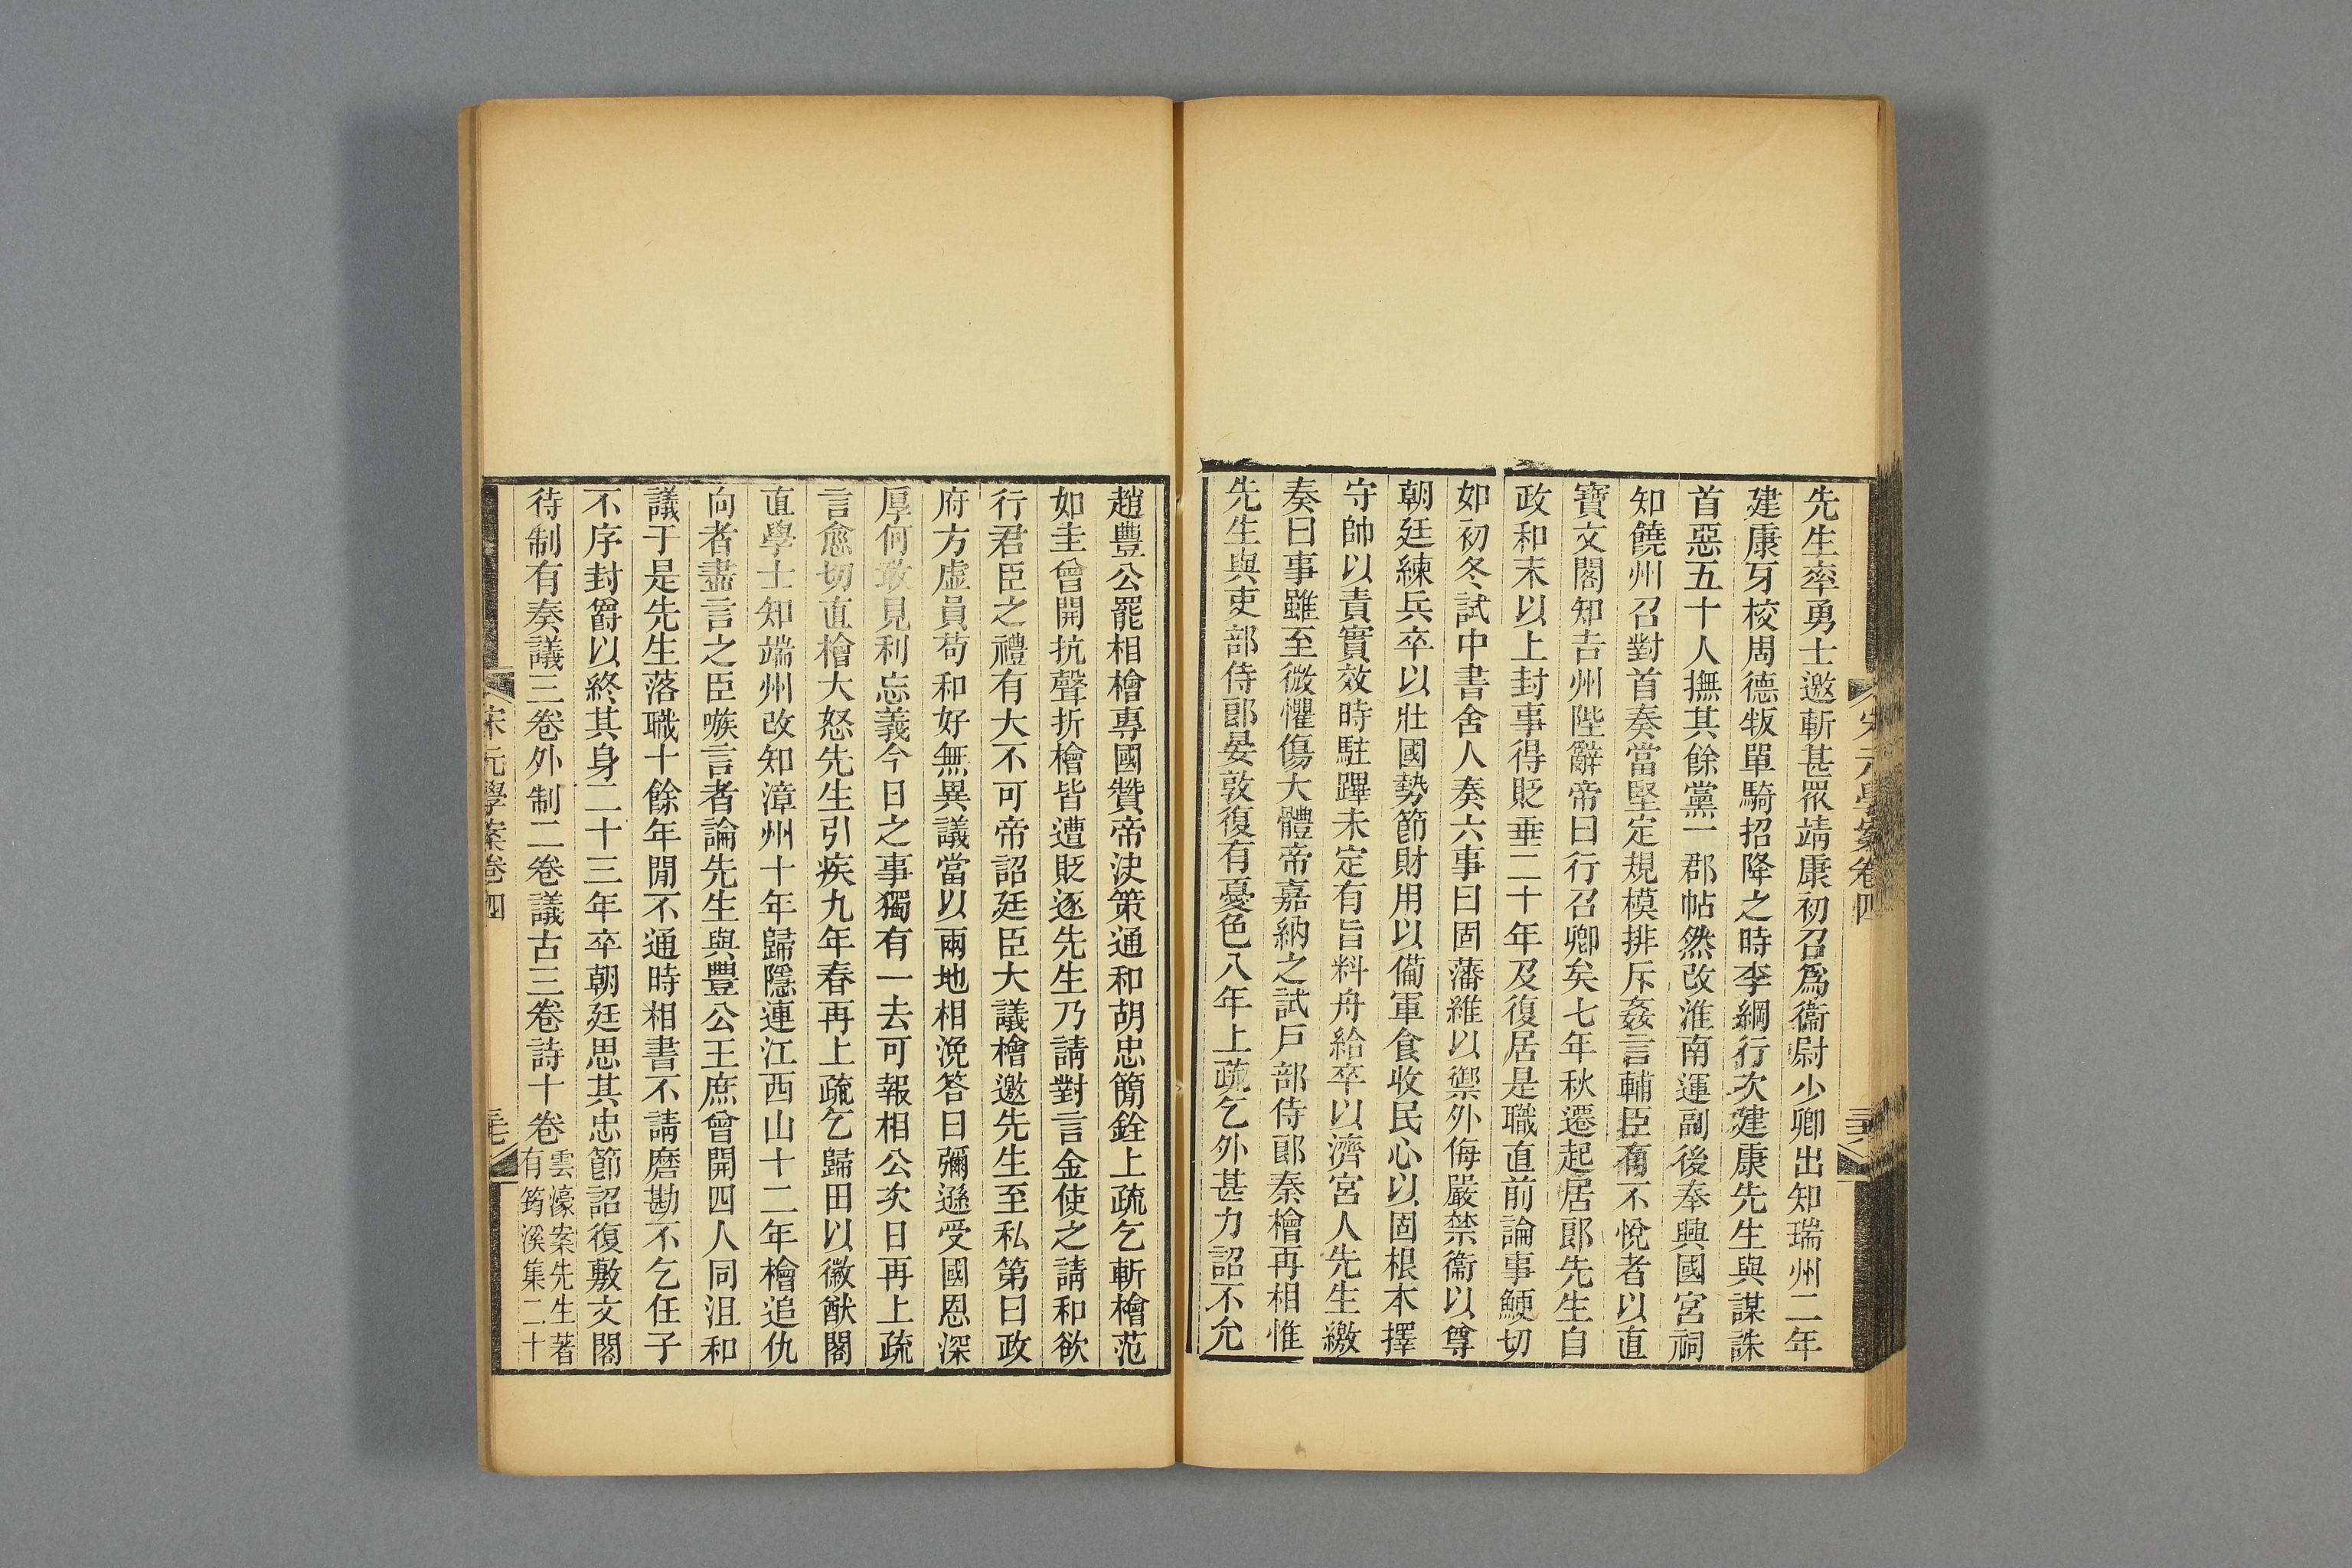 宋元學案卷四
先生率勇士邀斬甚眾靖康初召爲衞尉少卿出知瑞州二年
建康牙校周德叛單騎招降之時李綱行次建康先生與謀誅
首惡五十人撫其餘黨一郡帖然改淮南運副後奉興國宮祠
知饒州召對首奏當堅定規模排斥姦言輔臣有不悅者以直
寶文閣知吉州陛辭帝曰行召卿矣七年秋遷起居郎先生自
政和末以上封事得貶垂二十年及復居是職直前論事鯁切
如初冬試中書舍人奏六事曰固藩維以禦外侮嚴禁衞以尊
朝廷練兵卒以壯國勢節財用以備軍食收民心以固根本擇
守帥以責實效時駐蹕未定有旨料舟給卒以濟宮人先生繳
奏曰事雖至微懼傷大體帝嘉納之試戶部侍郎秦檜再相惟
先生與吏部侍郎晏敦復有憂色八年上疏乞外甚力詔不允
趙豐公罷相檜專國贊帝決策通和胡忠簡銓上疏乞斬檜范
如圭曾開抗聲折檜皆遭貶逐先生乃請對言金使之請和欲
行君臣之禮有大不可帝詔廷臣大議檜邀先生至私第曰政
府方虛員苟和好無異議當以兩地相浼答曰彌遜受國恩深
厚何敢見利忘義今日之事獨有一去可報相公次日再上疏
言愈切直檜大怒先生引疾九年春再上疏乞歸田以徽猷閣
直學士知端州改知漳州十年歸隱連江西山十二年檜追仇
向者盡言之臣嗾言者論先生與豐公王庶曾開四人同沮和
議于是先生落職十餘年閒不通時相書不請磨勘不乞任子
不序封爵以終其身二十三年卒朝廷思其忠節詔復敷文閣
待制有奏議三卷外制二卷議古三卷詩十卷
雲濠案先生著
有筠溪集二十
宋元學案卷四